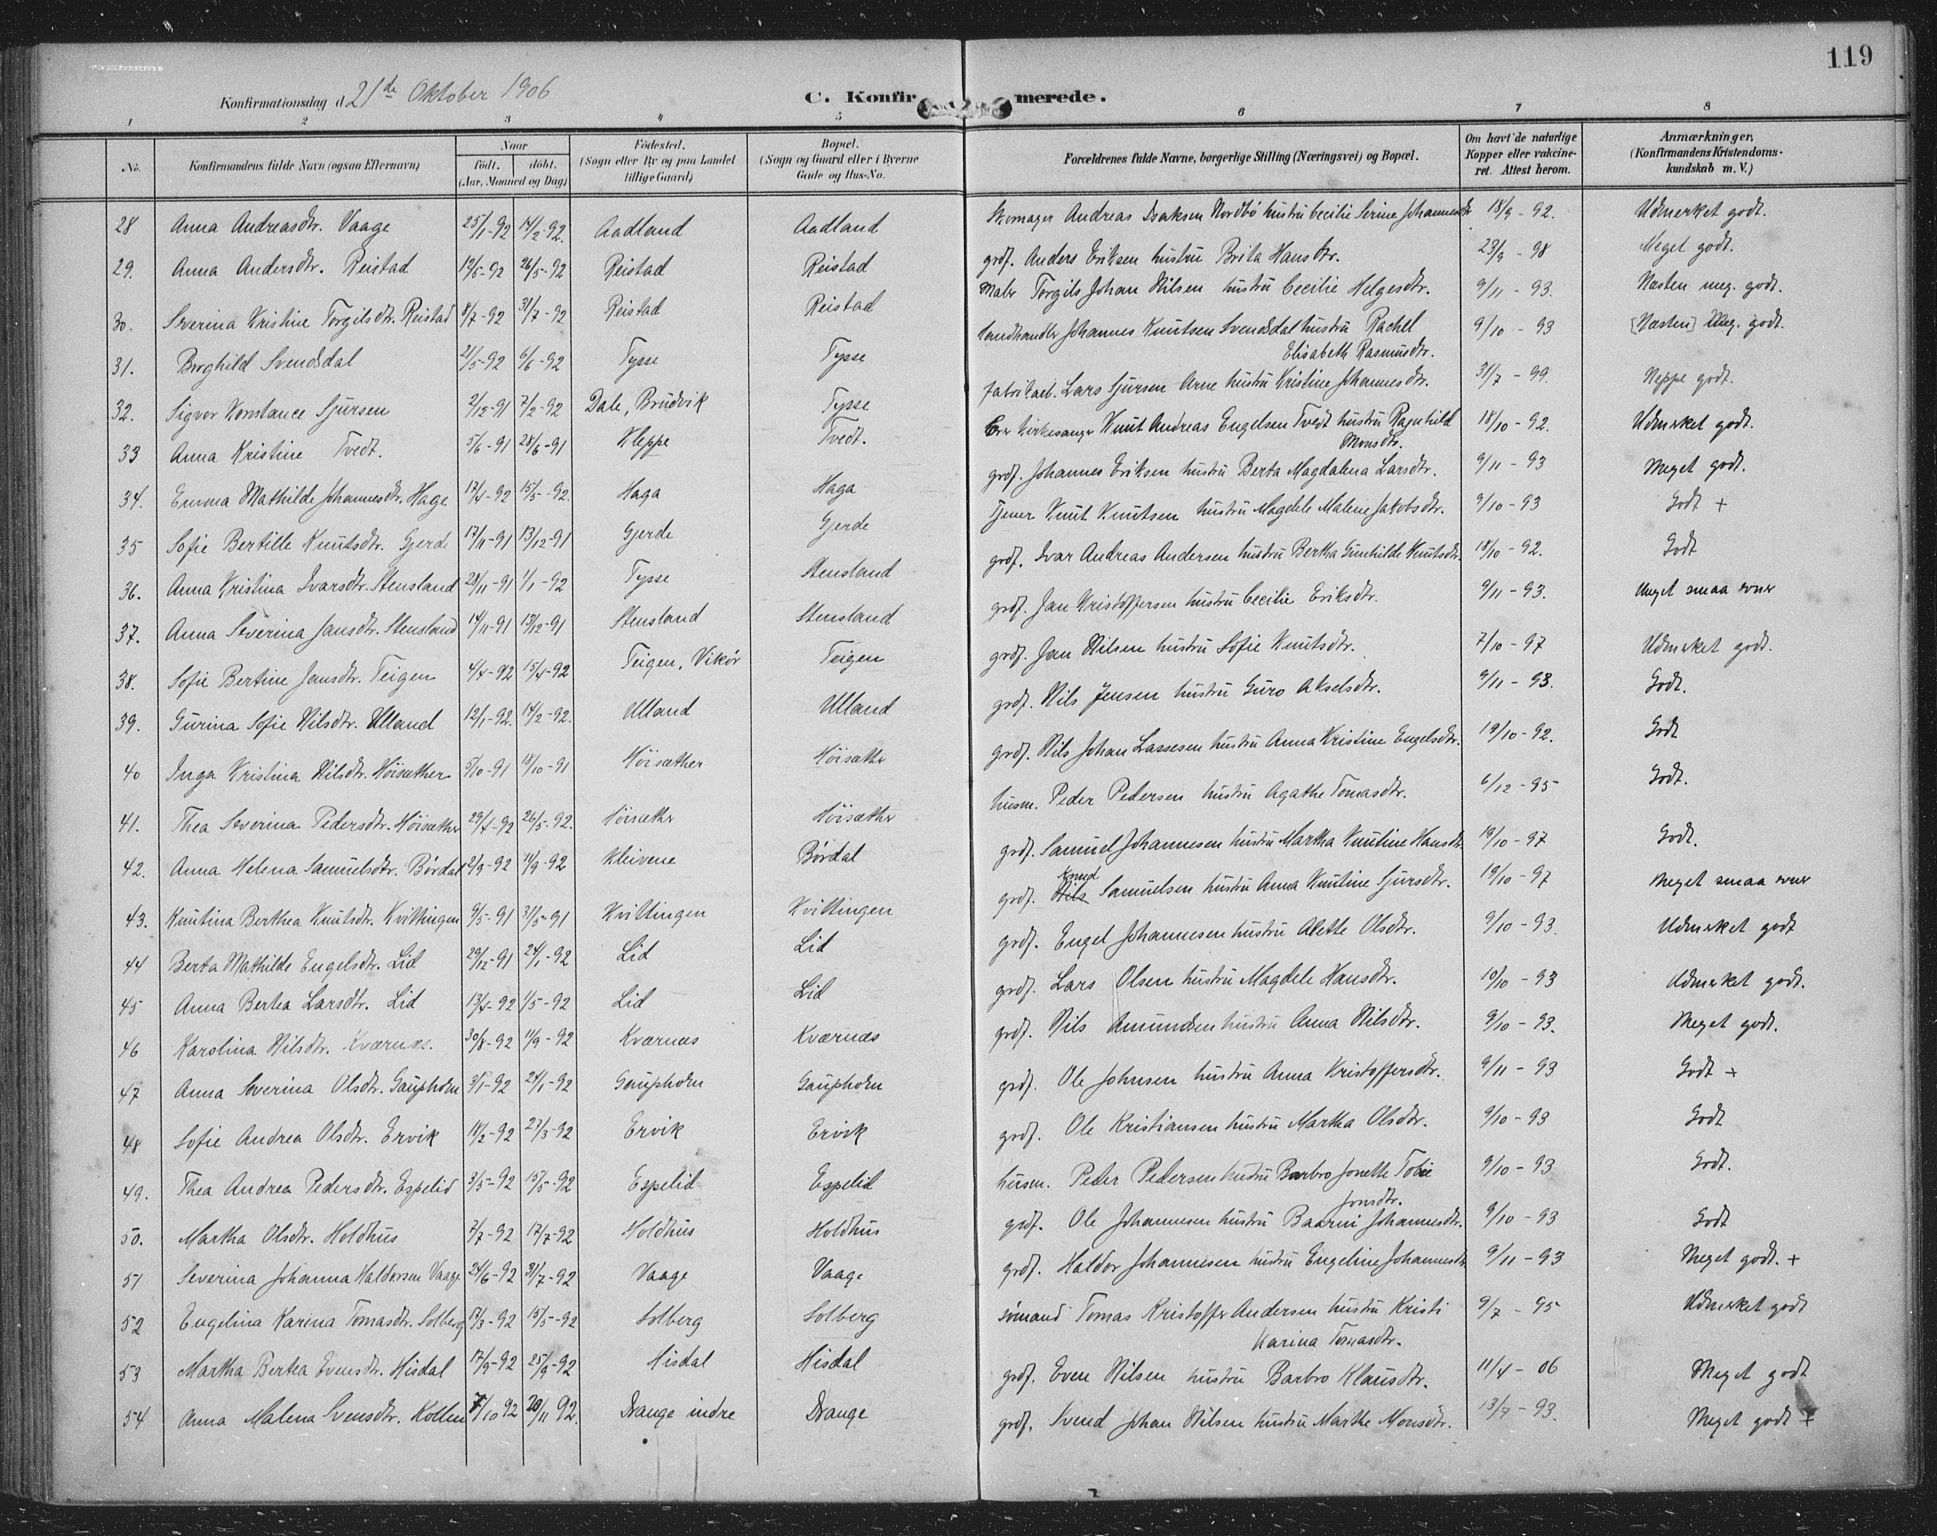 119
Konfirmationsdag d. 21de Oktober 1906
C. Konfirmerede.
1 2 3 4 5 6 7 8
No. Konfirmandens fulde Navn (ogsaa Efternavn) Naar født. døbt. (Aar, Maaned og Dag) Fødested. (Sogn eller By og paa Landet tillige Gaard) Bopæl. (Sogn og Gaard eller i Byerne Gade og Hus-No. Forældrenes fulde Navne, borgerlige Stilling (Næringsvei) og Bopæl. Om havt de naturlige Kopper eller vakcineret. Attest herom. Anmærkninger, (Konfirmandens Kristendomskundskab m. V.)
28 Anna Andreasdtr. Vaage 25/1-92 14/2-92. Aadland Aadland Skomager Andreas Isaksen Nordbø hustru Cecilie Serine Johannesdtr 18/9-92. Udmerket godt.
29. Anna Andersdtr. Reistad 19/5-92 26/5-92 Reistad Reistad grdf. Anders Eriksen hustru Brita Hansdtr. 29/9-98 Meget godt.
30. Severina Kristine Torgilsdtr. Reistad 8/7-92 31/7-92 Reistad Reistad Maler Torgils Johan Nilsen hustru Cecilie Helgesdtr. 9/11-93. Næsten meg. godt.
31. Borghild Svendsdal 21/5-92 6/6-92 Tysse Tysse Landhandler Johannes Knutsen Svendsdal hustru Rachel Elisabeth Rasmusdtr. 9/10-93 [Næsten] Meg. godt.
32. Sigvor Konstance Sjursen 2/12-91 7/2-92 Dale, Brudvik Tysse fabrikarb. Lars Sjursen Arne hustru Kristine Johannesdtr. 31/7-99. Neppe godt.
33 Anna Kristine Tvedt. 5/6-91 28/6-91 Kleppe Tvedt. Kirkesanger Knut Andreas Engelsen Tvedt hustru Ragnhild Monsdtr. 18/10-92. Udmerket godt.
34. Emma Mathilde Johannesdtr. Hage 17/4-92 15/5-92. Haga Haga grdf. Johannes Eriksen hustru Berta Magdalena Larsdtr. 9/11-93 Meget godt.
35 Sofie Bertille Knutsdtr. Gjerde 17/11-91 13/12-91 Gjerde Gjerde Knut Knutsen hustru Magdele Malene Jakobsdtr. 9/10-93 Godt +
36. Anna Kristina Ivarsdtr. Stensland 28/11-91 1/1-92 Tysse Stensland grdf. Ivar Andreas Andersen hustru Bertha Gunhilde Knutsdtr. 18/10-92. Godt
37. Anna Severina Jansdtr. Stensland 14/11-91 13/12-91 Stensland Stensland grdf. Jan Kristoffersen hustru Cecilie Eriksdtr. 9/11-93. Meget smaa evner
38. Sofie Bertine Jansdtr. Teigen 4/4-92 15/4-92 Teigen, Vikør Teigen grdf. Jan Nilsen hustru Sofie Knutsdtr. 7/10-97 Udmerket godt.
39. Gurina Sofie Nilsdtr. Ulland 12/1-92. 14/2-92. Ulland Ulland grdf. Nils Jensen hustru Guro Akselsdtr. 9/11-93. Godt.
40 Inga Kristina Nilsdtr. Høisæther 5/10-91 18/10-91 Høisæther Høisæther grdf. Nils Johan Lassesen hustru Anna Kristine Engelsdtr. 19/10-92. Godt
41. Thea Severina Pedersdtr. Høisæther 29/4-92 26/5-92. Høisæther Høisæther husm. Peder Pedersen hustru Agathe Tomasdtr. 6/12-95 Godt.
42. Anna Helena Samuelsdtr. Børdal 2/9-92 11/9-92 Kleivene Børdal grdf. Samuel Johannesen hustru Martha Knutine Hansdtr 19/10-97 Godt.
43. Knutina Berthea Knutsdtr. Kvittingen 9/5-91 31/5-91 Kvittingen Kvittingen grdf. Nils Knud Samuelsen hustru Anna Knutine Sjursdtr. 19/10-97 Meget smaa evner
44 Berta Mathilde Engelsdtr. Lid 29/12-91 24/1-92 Lid Lid grdf. Engel Johannesen hustru Alette Olsdtr. 9/10-93. Udmerket godt
45 Anna Bertea Larsdtr. Lid 13/4-92 1/5-92 Lid Lid grdf. Lars Olsen hustru Magdele Hansdtr. 10/10-93 Udmerket godt.
46 Karolina Nilsdtr. Kværnæs. 30/8-92 11/9-92 Kværnæs Kværnæs grdf. Nils Amundsen hustru Anna Nilsdtr. 9/10-93. Meget godt.
47 Anna Severina Olsdtr. Gaupholm 3/1-92 24/1-92 Gaupholm Gaupholm grdf. Ole Johnsen hustru Anna Kristoffersdtr. 9/11-93 Godt +
48 Sofie Andrea Olsdtr. Ervik 18/2-92 27/3-92 Ervik Ervik grdf. Ole Kristiansen hustru Martha Olsdtr. 9/10-93 Godt
49. Thea Andrea Pedersdtr. Espelid 3/5-92 15/5-92 Espelid Espelid husm. Peter Pedersen hustru Barbro Jonette Tobie Jonsdtr. 9/10-93 Godt.
50. Martha Olsdtr. Holdhus 7/7-92 17/7-92 Holdhus Holdhus grdf. Ole Johannesen hustru Baarni Johannesdtr. 9/10-93 Godt
51 Severina Johanna Haldorsen Vaage 24/6-92 31/7-92 Vaage Vaage grdf. Haldor Johannesen hustru Engeline Johannesdtr 9/11-93 Meget godt. +
52 Engelina Karina Tomasdtr. Solberg 17/3-92 15/5-92 Solberg Solberg sømand Tomas Kristoffer Andersen hustru Kristi Karina Tomasdtr. 9/7-95 Udmerket godt
53 Martha Bertea Evensdtr. Hisdal 17/9-92 25/9-92 Hisdal Hisdal grdf. Even Nilsen hustru Barbro Klausdtr. 11/4-06 Meget godt
54 Anna Malena Svensdtr. Kollen 7/10 92 20/11 92. Drange indre Drange grdf. Svend Johan Nilsen hustru Marthe Monsdtr. 13/7-93. Meget godt +